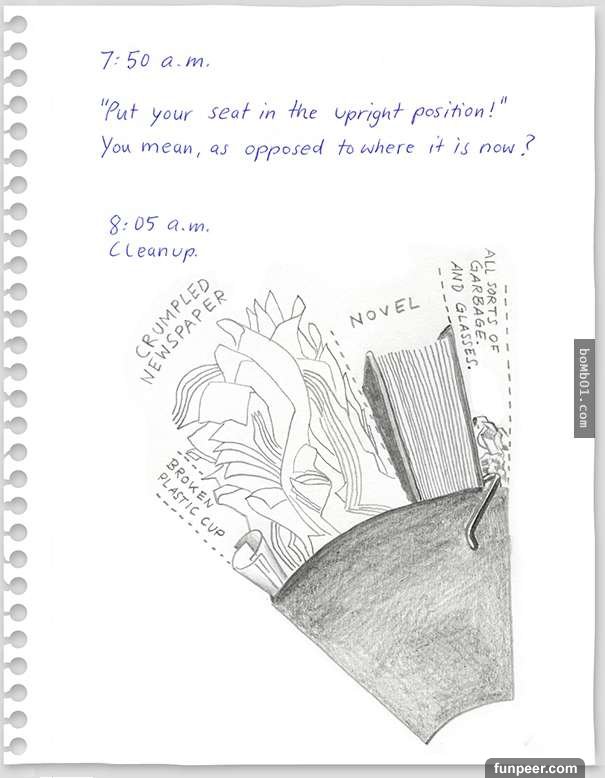 7:50 a.m.
"Put your seat in the upright position!"
You mean, as opposed to where it is now?
8:05 a.m.
Cleanup.
CRUMPLED
NEWSPAPER
NOVEL
ALL SORTS OF
GARBAGE.
AND GLASSES.
BROKEN
PLASTIC CUP
bomb01.com
funpeer.com